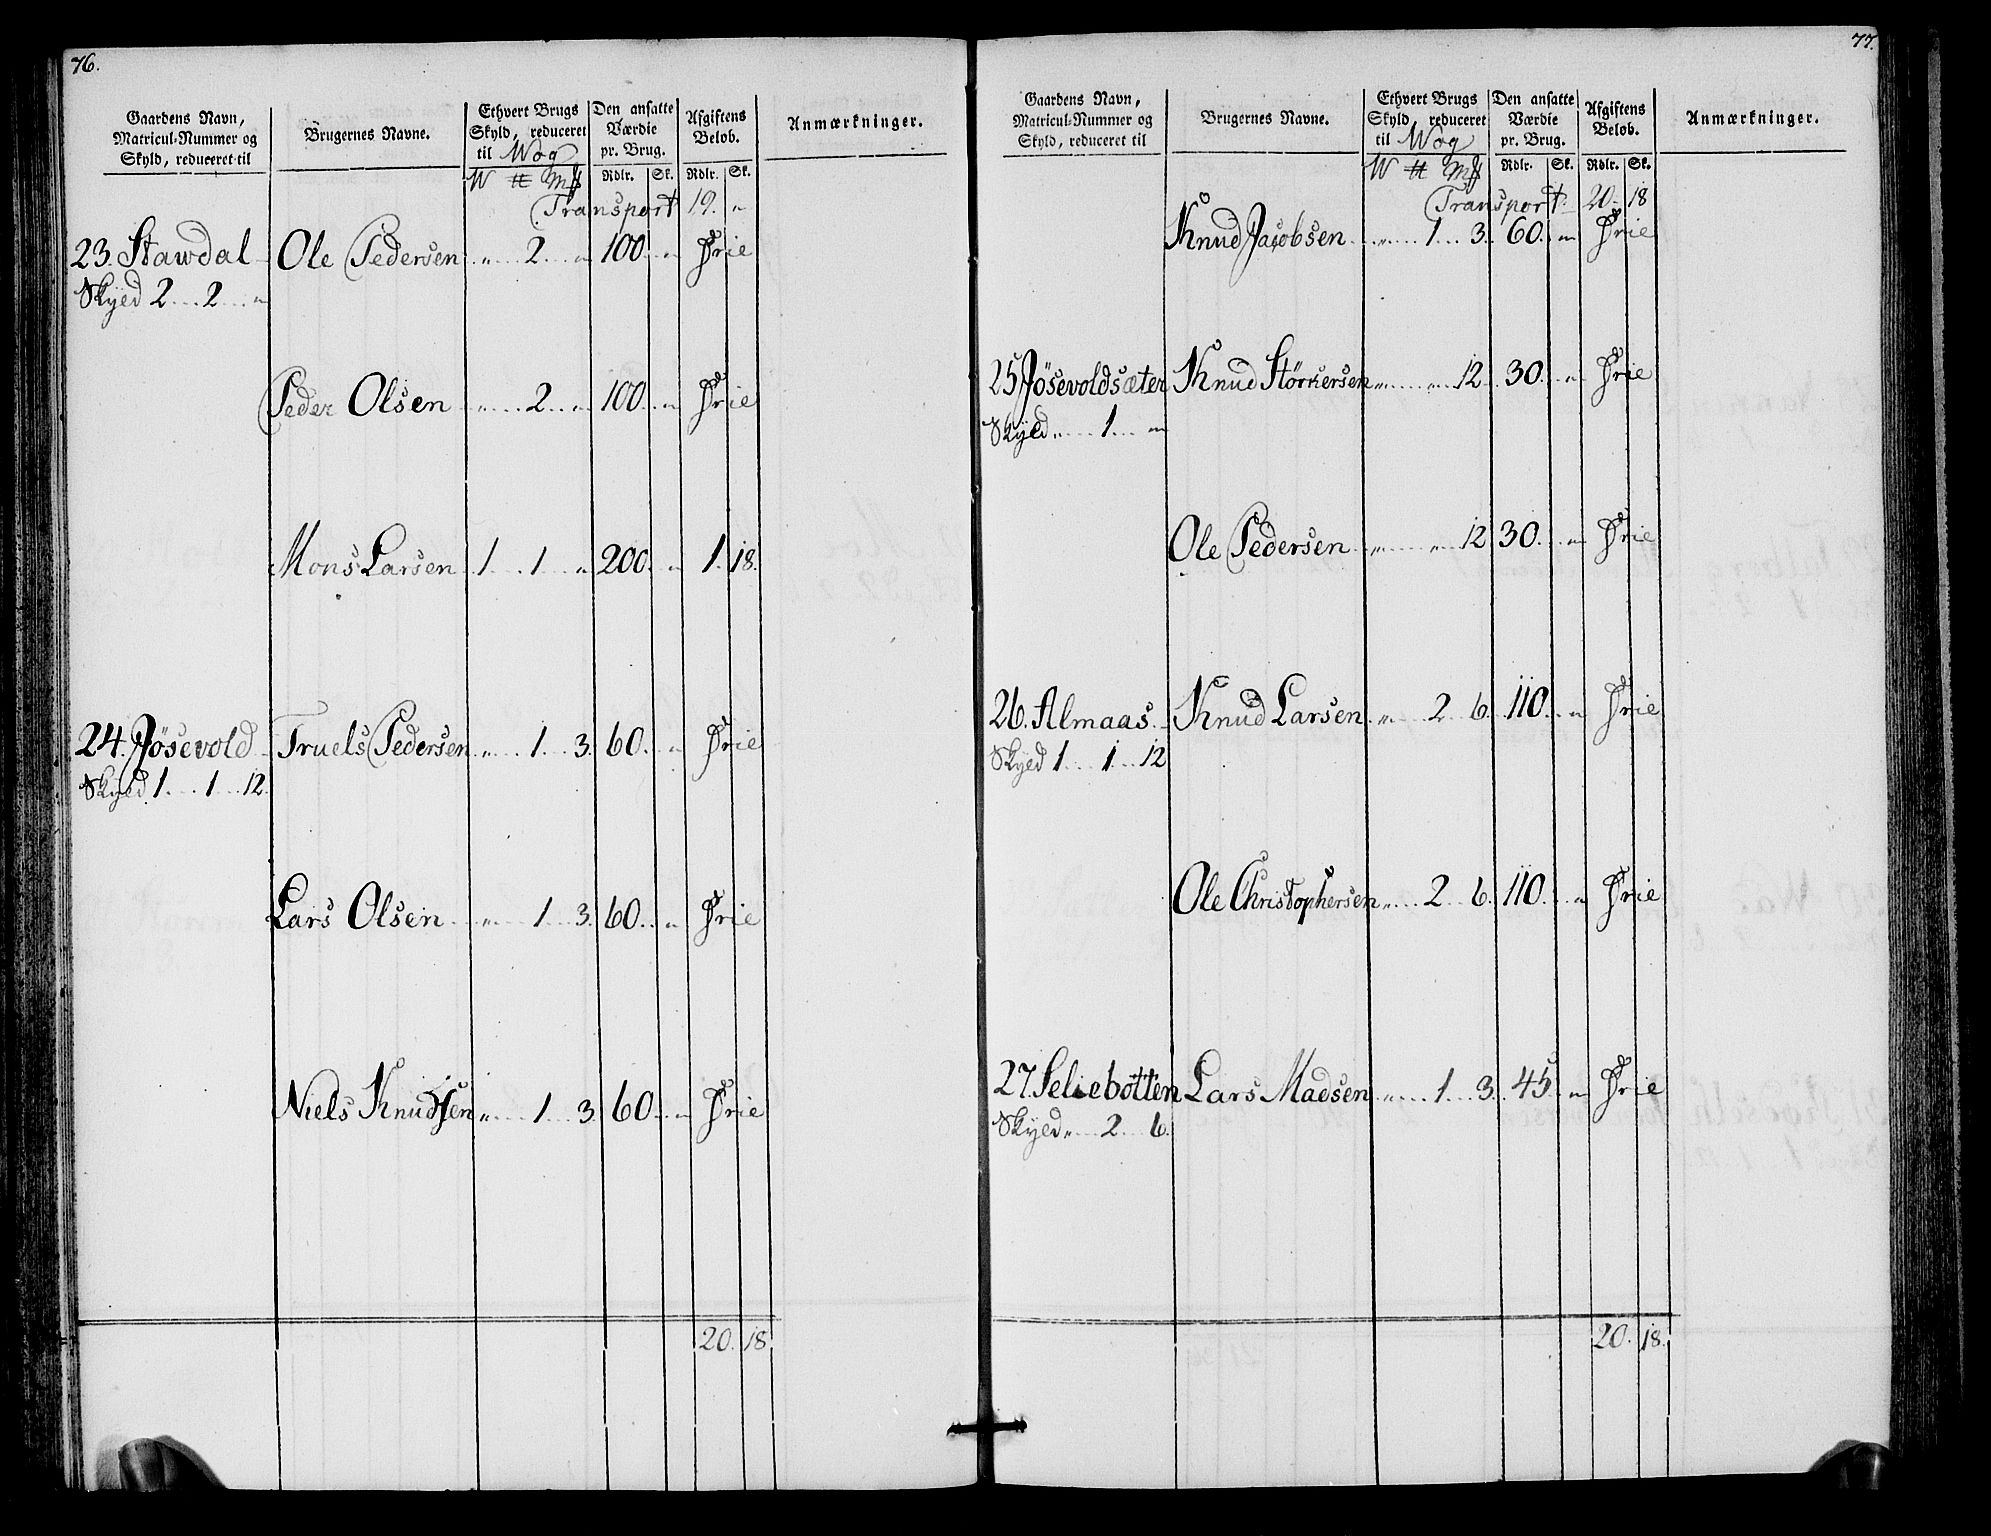 76.
Gaardens Navn, Matricul-Nummer og Skyld, reduceret til | Brugernes Navne. | Ethvert Brugs Skyld, reduceret til Wog | Den ansatte Værdie pr. Brug. | Afgiftens Belob. | Anmærkninger.
W ℔ Mk | Rdlr. | Sk. | Rdlr. | Sk.
Transport 19. „
23. Stawdal Ole Pedersen „ 2 „ 100 „ Frie
Skyld 2 2 „
Peder Olsen „ 2 „ 100 „ Frie
Mons Larsen 1 1 „ 200 „ 1. 18.
24. Jösevold Truels Pedersen „ 1 3. 60 „ Frie
Skyld 1 1 12.
Lars Olsen „ 1 3. 60 „ Frie
Niels Knudsen „ 1 3. 60 „ Frie
20. 18.
77.
Gaardens Navn, Matricul-Nummer og Skyld, reduceret til | Brugernes Navne. | Ethvert Brugs Skyld, reduceret til Wog | Den ansatte Værdie pr. Brug. | Afgiftens Belob. | Anmærkninger.
W ℔ Mk | Rdlr. | Sk. | Rdlr. | Sk.
Transport 20. 18
Knud Jacobsen „ 1 3. 60 „ Frie
25 Jösevoldsæter Knud Störkersen „ „ 12 30. „ Frie
Skyld „ 1 „
Ole Pedersen „ „ 12 30. „ Frie
26. Almaas Knud Larsen „ 2 6. 110. „ Frie
Skyld 1 1 12
Ole Christophersen „ 2 6. 110. „ Frie
27. Seliebotten Lars Madsen „ 1 3. 45. „ Frie
Skyld „ 2 6.
20. 18.